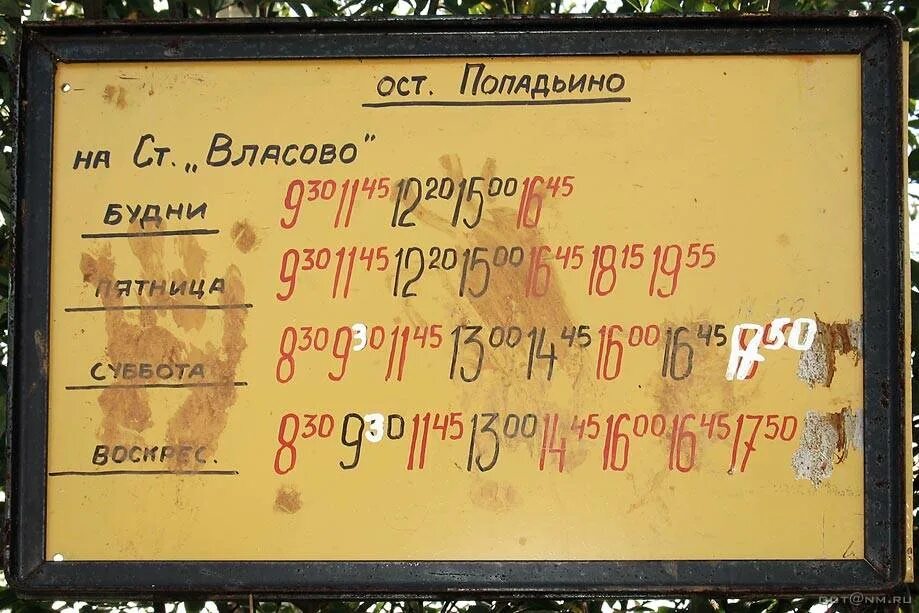 ост. Попадьино
на Ст. „Власово"
будни 9³⁰ 11⁴⁵ 12²⁰ 15⁰⁰ 16⁴⁵
пятница 9³⁰ 11⁴⁵ 12²⁰ 15⁰⁰ 16⁴⁵ 18¹⁵ 19⁵⁵
суббота 8³⁰ 9³⁰ 11⁴⁵ 13⁰⁰ 14⁴⁵ 16⁰⁰ 16⁴⁵ 17⁵⁰
воскрес. 8³⁰ 9³⁰ 11⁴⁵ 13⁰⁰ 14⁴⁵ 16⁰⁰ 16⁴⁵ 17⁵⁰
GOT@NM.RU